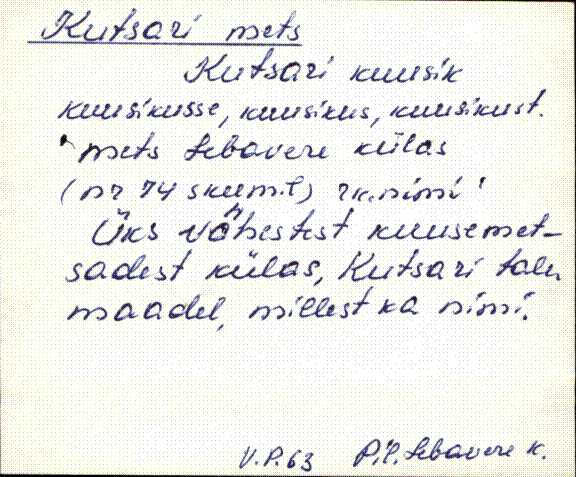 Kutsari mets
Kutsari kuusik
kuusikusse, kuusikus, kuusikust.
mets Lebavere külas
(nr 74 skeemil) rk. nimi
Üks vähestest kuusemet-
sadest külas, Kutsari talu
maadel, millest ka nimi.
V.P. 63 P.P. Lebavere k.